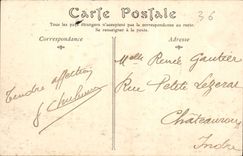 Carte Postale
36
Tous les pays étrangers n'acceptent pas la correspondance au recto.
Se renseigner à la poste.
Correspondance
Adresse
Tendre affection
Melle Renée Gautier
Rue Petite
Châteauroux
Indre